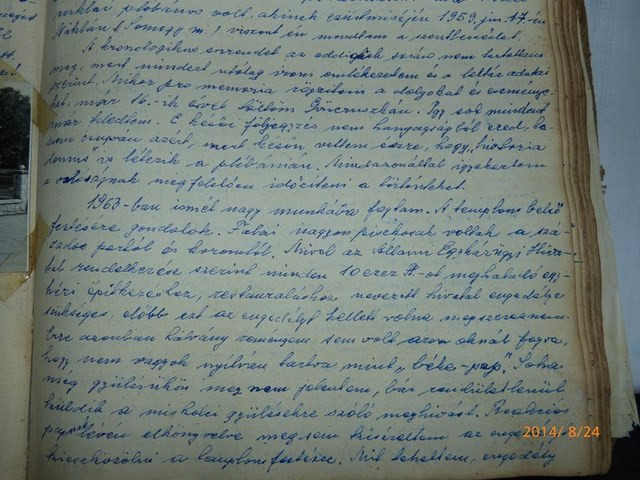 miklósi plébános volt, akinek ezüstmiséjén 1959. jún. 17-én
Miklósi (Somogy m.) viszont én mondtam a szentbeszédet.
A kronologikus sorrendet az eddigiek során nem tartottam
meg, mert mindezt utólag írom emlékezetem és a levéltár adatai
szerint. Mikor pro memoria rögzítem a dolgokat és esemény-
ket, már 16.-ik évet töltöm Göncruszkán. Így sok mindent
már feledtem. E késői följegyzés nem hanyagságból ered, ha-
nem csupán azért, mert későn vettem észre, hogy "historia
domus" is létezik a plébánián. Mindazonáltal igyekeztem
a valóságnak megfelelően idősíteni a történteket.
1963-ban ismét nagy munkába fogtam. A templom belső
festésére gondolok. Falai nagyon piszkosak voltak a szá-
zados portól és koromtól. Mivel az Állami Egyházügyi Hiva-
tal rendelkezése szerint minden 10 ezer Ft-ot meghaladó egy-
házi építkezéshez, restauráláshoz nevezett hivatal engedélye
szükséges, előbb ezt az engedélyt kellett volna megszereznem.
Erre azonban halvány reményem sem volt azon oknál fogva,
hogy nem vagyok nyilván tartva mint "béke-pap". Soha
még gyűlésükön meg nem jelentem, bár rendületlenül
küldték a miskolci gyűlésekre szóló meghívást. Reakciós
papnak lévén elkönyvelve meg sem kíséreltem az engedélyt
kieszközölni a templomfestésre. Mit tehettem, engedély
2014/8/24